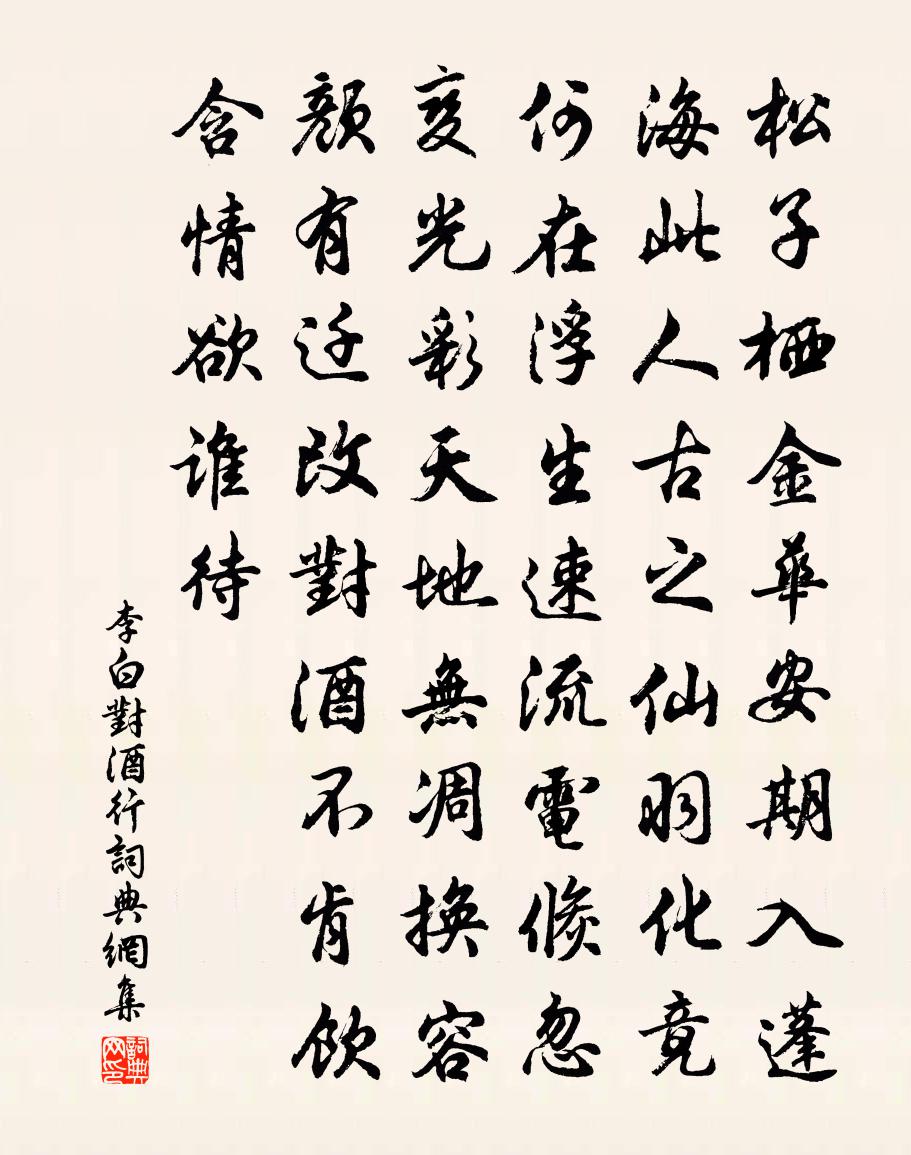 松子栖金華安期入蓬
海此人古之仙羽化竟
何在浮生速流電倏忽
变光彩天地無凋換容
顏有迁改對酒不肯飲
含情欲誰待
李白對酒行詞典網集
詞典网印